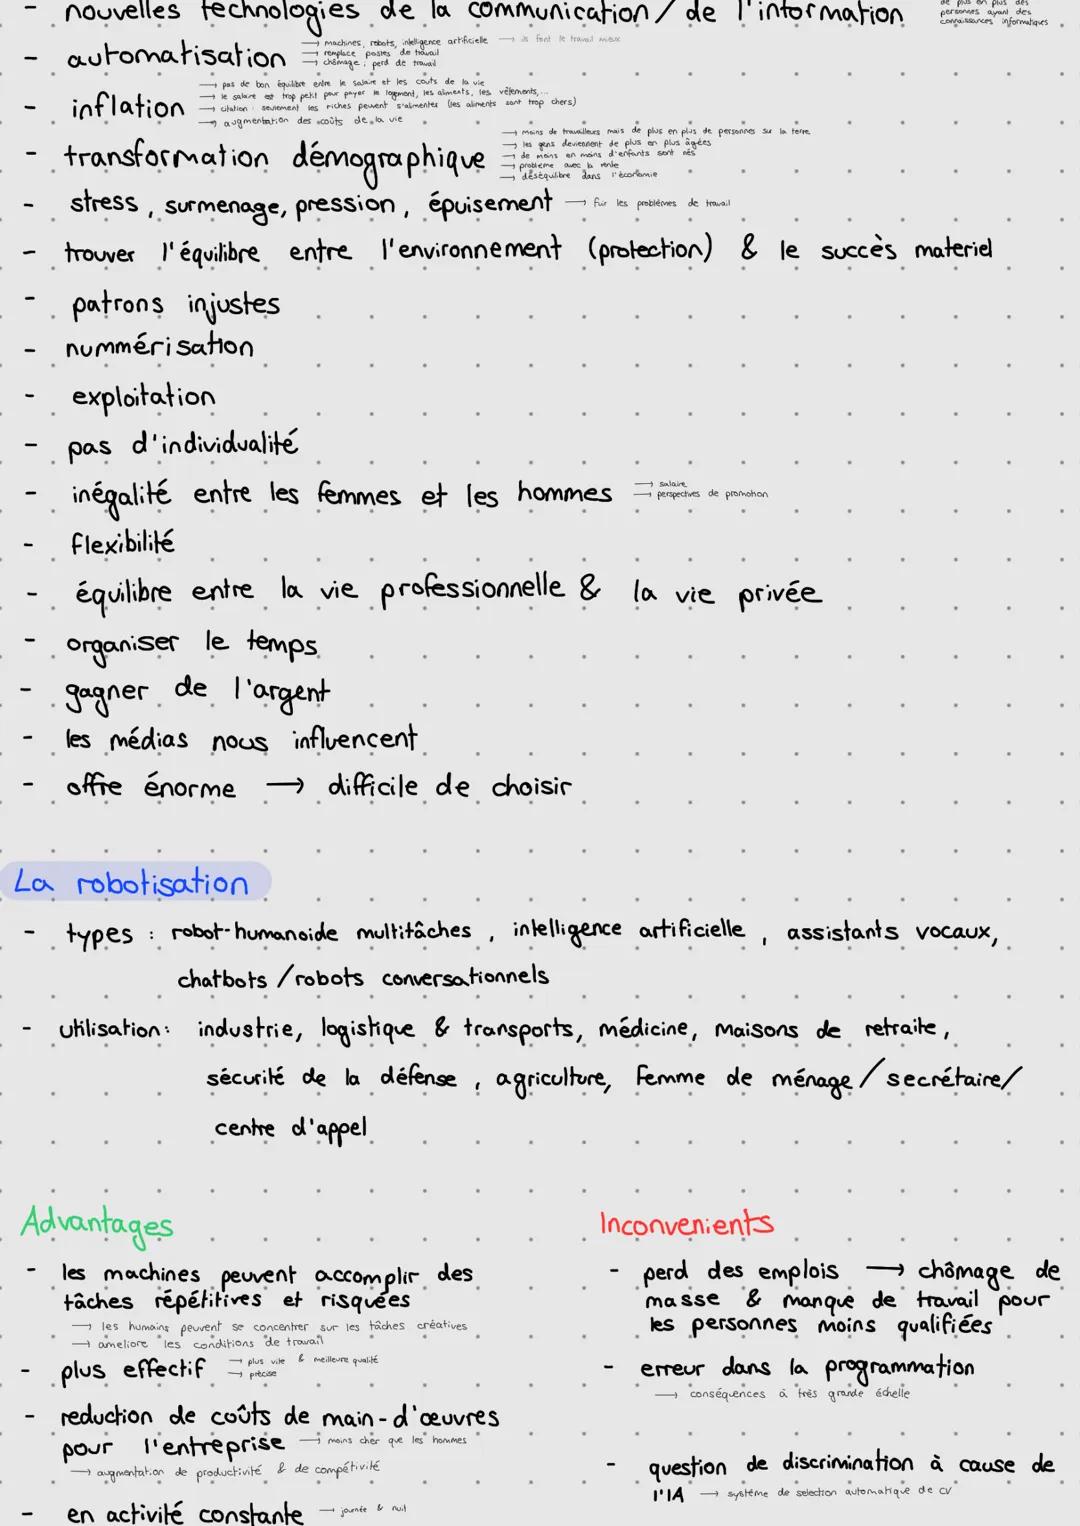 - nouvelles technologies de la communication / de l'information
de plus en plus des
personnes ayant des
connaissances informatiques
- automatisation
→ machines, robots, intelligence artificielle → ils font le travail mieux
→ remplace postes de travail
→ chômage, perd de travail
- inflation
→ pas de bon équilibre entre le salaire et les couts de la vie
→ le salaire est trop petit pour payer le logement, les aliments, les vêtements,...
→ citation : seulement les riches peuvent s'alimenter (les aliments sont trop chers)
→ augmentation des coûts de la vie
- transformation démographique
→ moins de travailleurs mais de plus en plus de personnes sur la terre
→ les gens deviennent de plus en plus âgées
→ de moins en moins d'enfants sont nés
→ problème avec la rente
→ déséquilibre dans l'économie
- stress, surmenage, pression, épuisement → fuir les problèmes de travail
- trouver l'équilibre entre l'environnement (protection) & le succès materiel
- patrons injustes
- nummérisation
- exploitation
- pas d'individualité
- inégalité entre les femmes et les hommes
→ salaire
→ perspectives de promotion
- flexibilité
- équilibre entre la vie professionnelle & la vie privée
- organiser le temps
- gagner de l'argent
- les médias nous influencent
- offre énorme → difficile de choisir
La robotisation
- types : robot-humanoide multitâches, intelligence artificielle, assistants vocaux,
chatbots / robots conversationnels
- utilisation: industrie, logistique & transports, médicine, maisons de retraite,
sécurité de la défense, agriculture, femme de ménage / secrétaire /
centre d'appel
Advantages
- les machines peuvent accomplir des
tâches répétitives et risquées
→ les humains peuvent se concentrer sur les tâches créatives
→ améliore les conditions de travail
- plus effectif
→ plus vite & meilleure qualité
→ précise
- reduction de coûts de main-d'œuvres
pour l'entreprise → moins cher que les hommes
→ augmentation de productivité & de compétivité
- en activité constante → journée & nuit
Inconvenients
- perd des emplois → chômage de
masse & manque de travail pour
les personnes moins qualifiées
- erreur dans la programmation
→ conséquences à très grande échelle
- question de discrimination à cause de
l'IA → système de selection automatique de cv